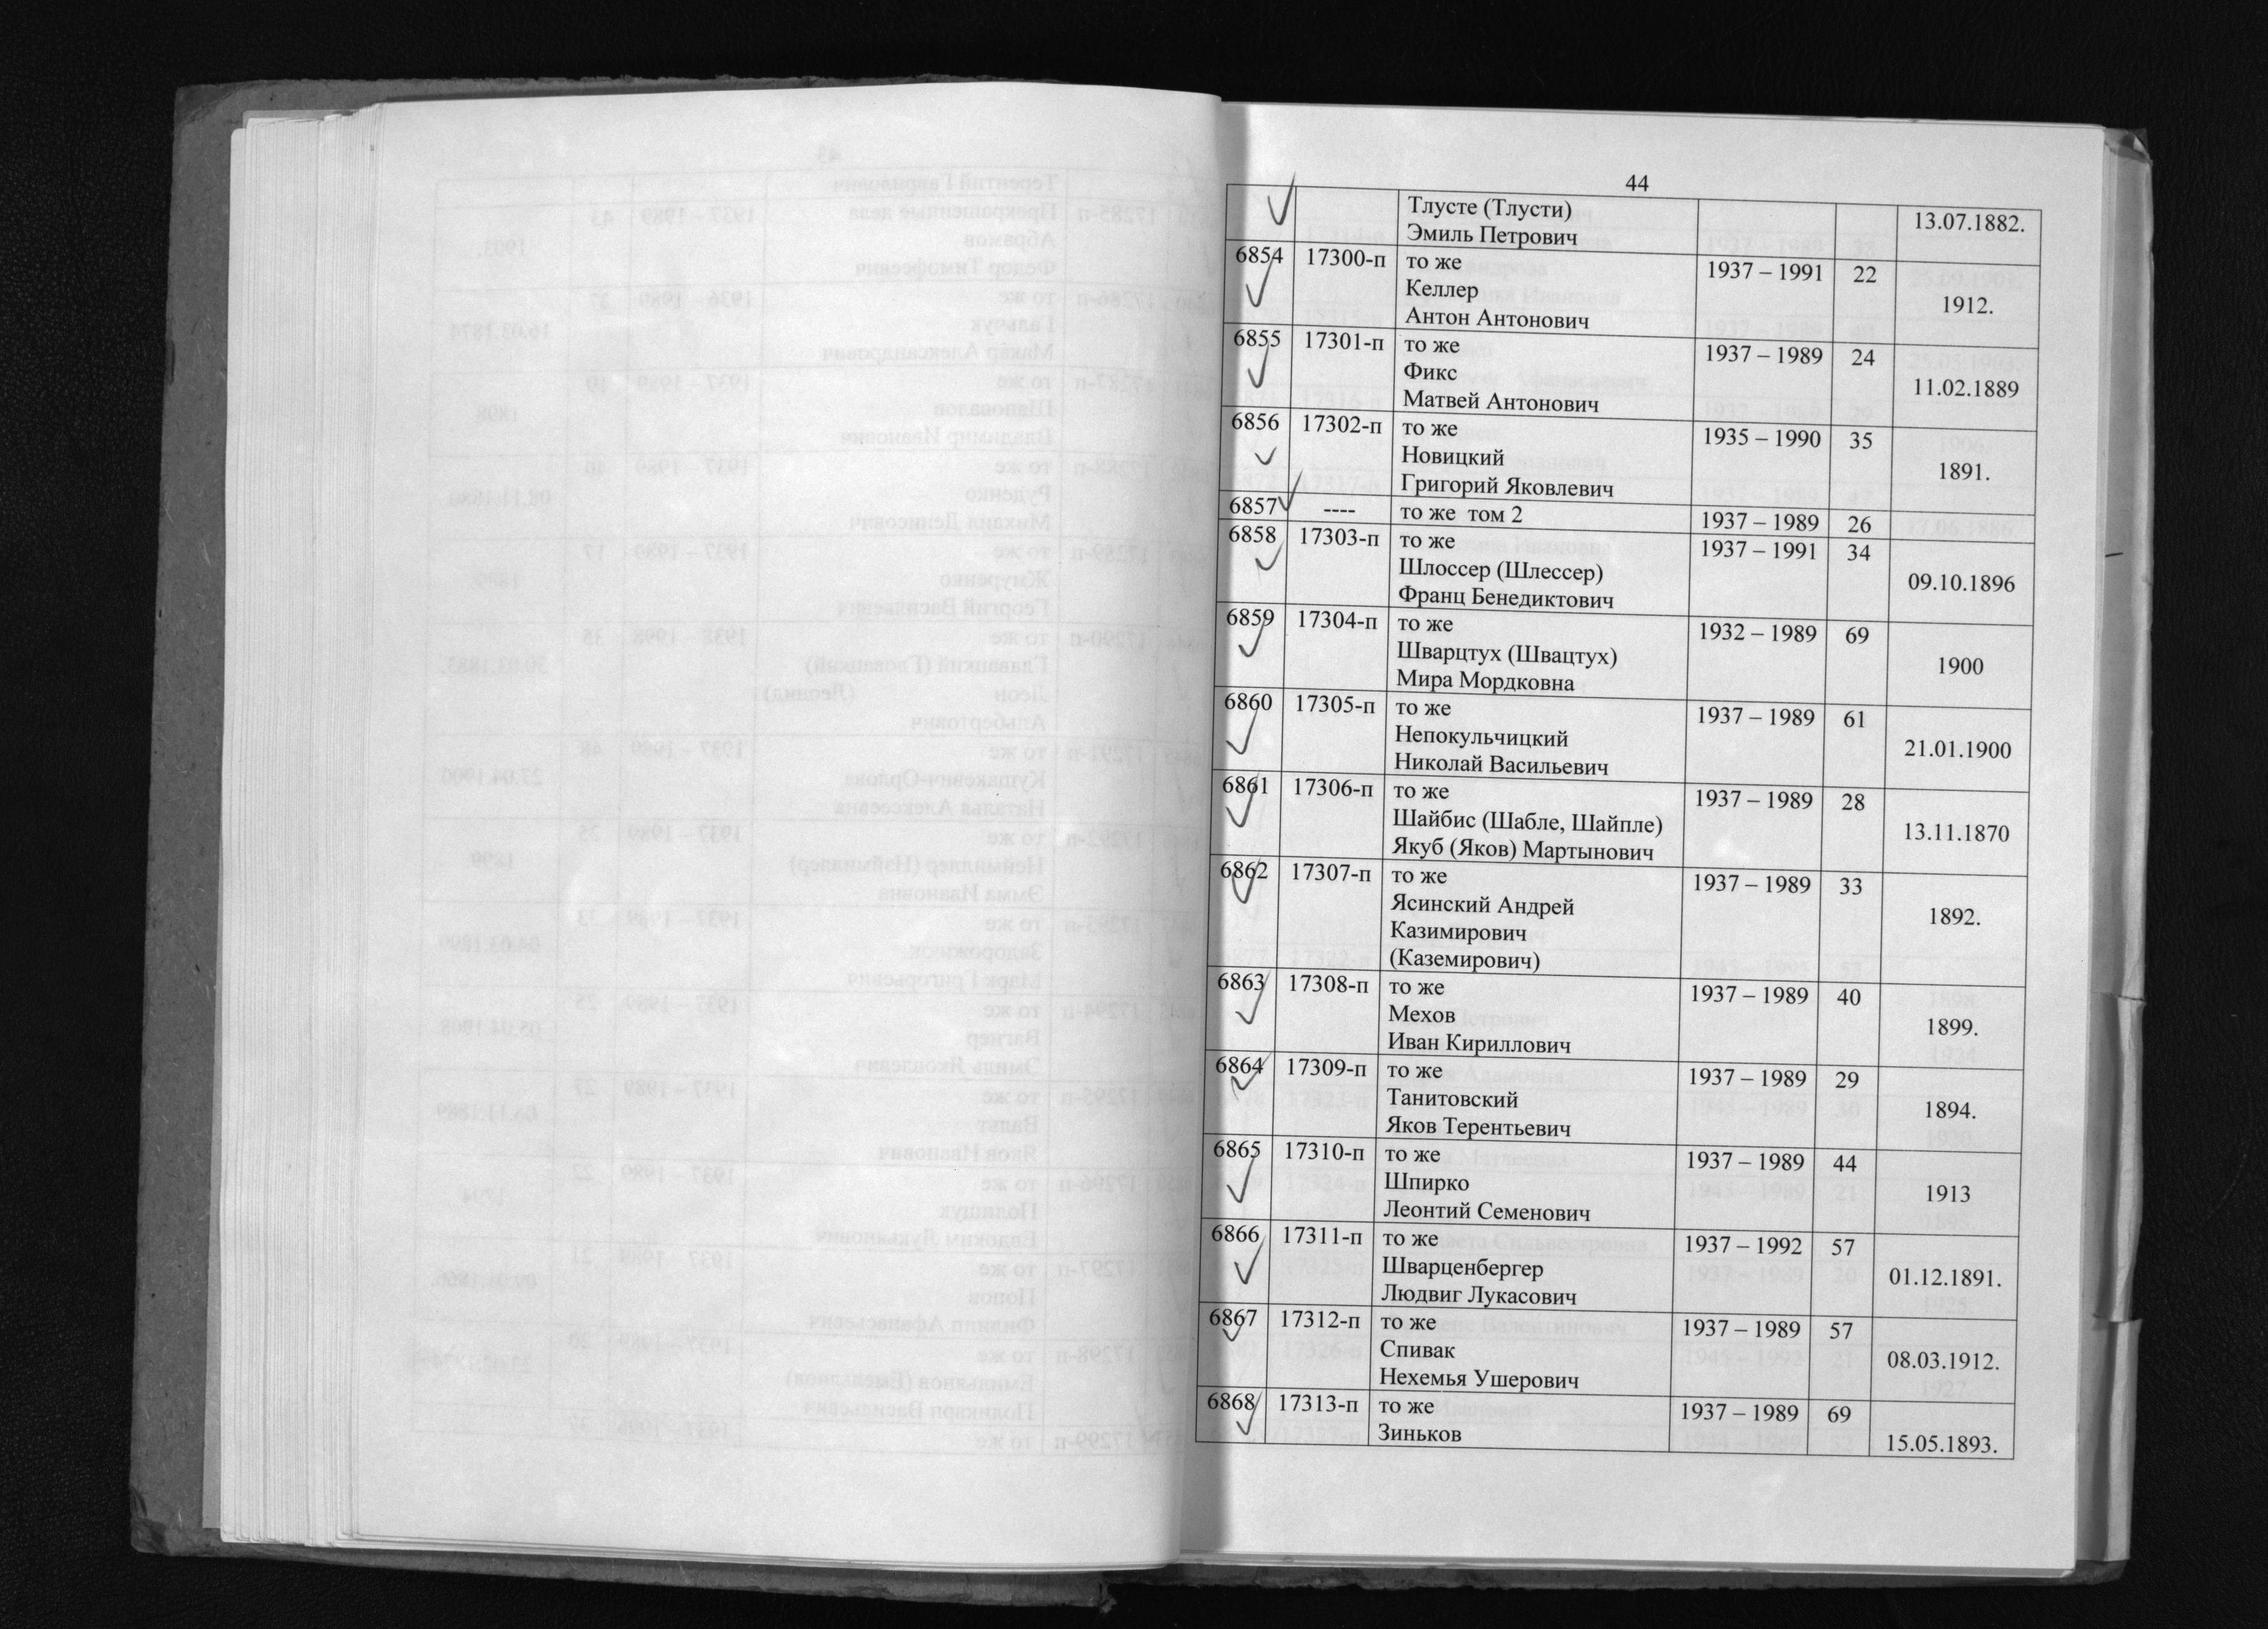 44
Тлусте (Тлусти) 13.07.1882.
Эмиль Петрович
6854 17300-п то же 1937 – 1991 22
Келлер 1912.
Антон Антонович
6855 17301-п то же 1937 – 1989 24
Фикс 11.02.1889
Матвей Антонович
6856 17302-п то же 1935 – 1990 35
Новицкий 1891.
Григорий Яковлевич
6857 ---- то же том 2 1937 – 1989 26
6858 17303-п то же 1937 – 1991 34
Шлоссер (Шлессер) 09.10.1896
Франц Бенедиктович
6859 17304-п то же 1932 – 1989 69
Шварцтух (Швацтух) 1900
Мира Мордковна
6860 17305-п то же 1937 – 1989 61
Непокульчицкий 21.01.1900
Николай Васильевич
6861 17306-п то же 1937 – 1989 28
Шайбис (Шабле, Шайпле) 13.11.1870
Якуб (Яков) Мартынович
6862 17307-п то же 1937 – 1989 33
Ясинский Андрей 1892.
Казимирович
(Каземирович)
6863 17308-п то же 1937 – 1989 40
Мехов 1899.
Иван Кириллович
6864 17309-п то же 1937 – 1989 29
Танитовский 1894.
Яков Терентьевич
6865 17310-п то же 1937 – 1989 44
Шпирко 1913
Леонтий Семенович
6866 17311-п то же 1937 – 1992 57
Шварценбергер 01.12.1891.
Людвиг Лукасович
6867 17312-п то же 1937 – 1989 57
Спивак 08.03.1912.
Нехемья Ушерович
6868 17313-п то же 1937 – 1989 69
Зиньков 15.05.1893.